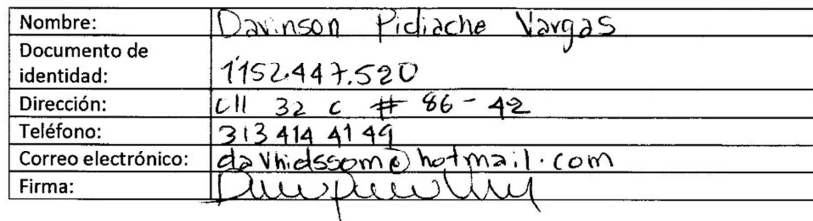 Nombre: Davinson Pidiache Vargas
Documento de
identidad: 1'152.447.520
Dirección: cll 32 c # 86 - 42
Teléfono: 313 414 41 49
Correo electrónico: davhidssom@hotmail.com
Firma: